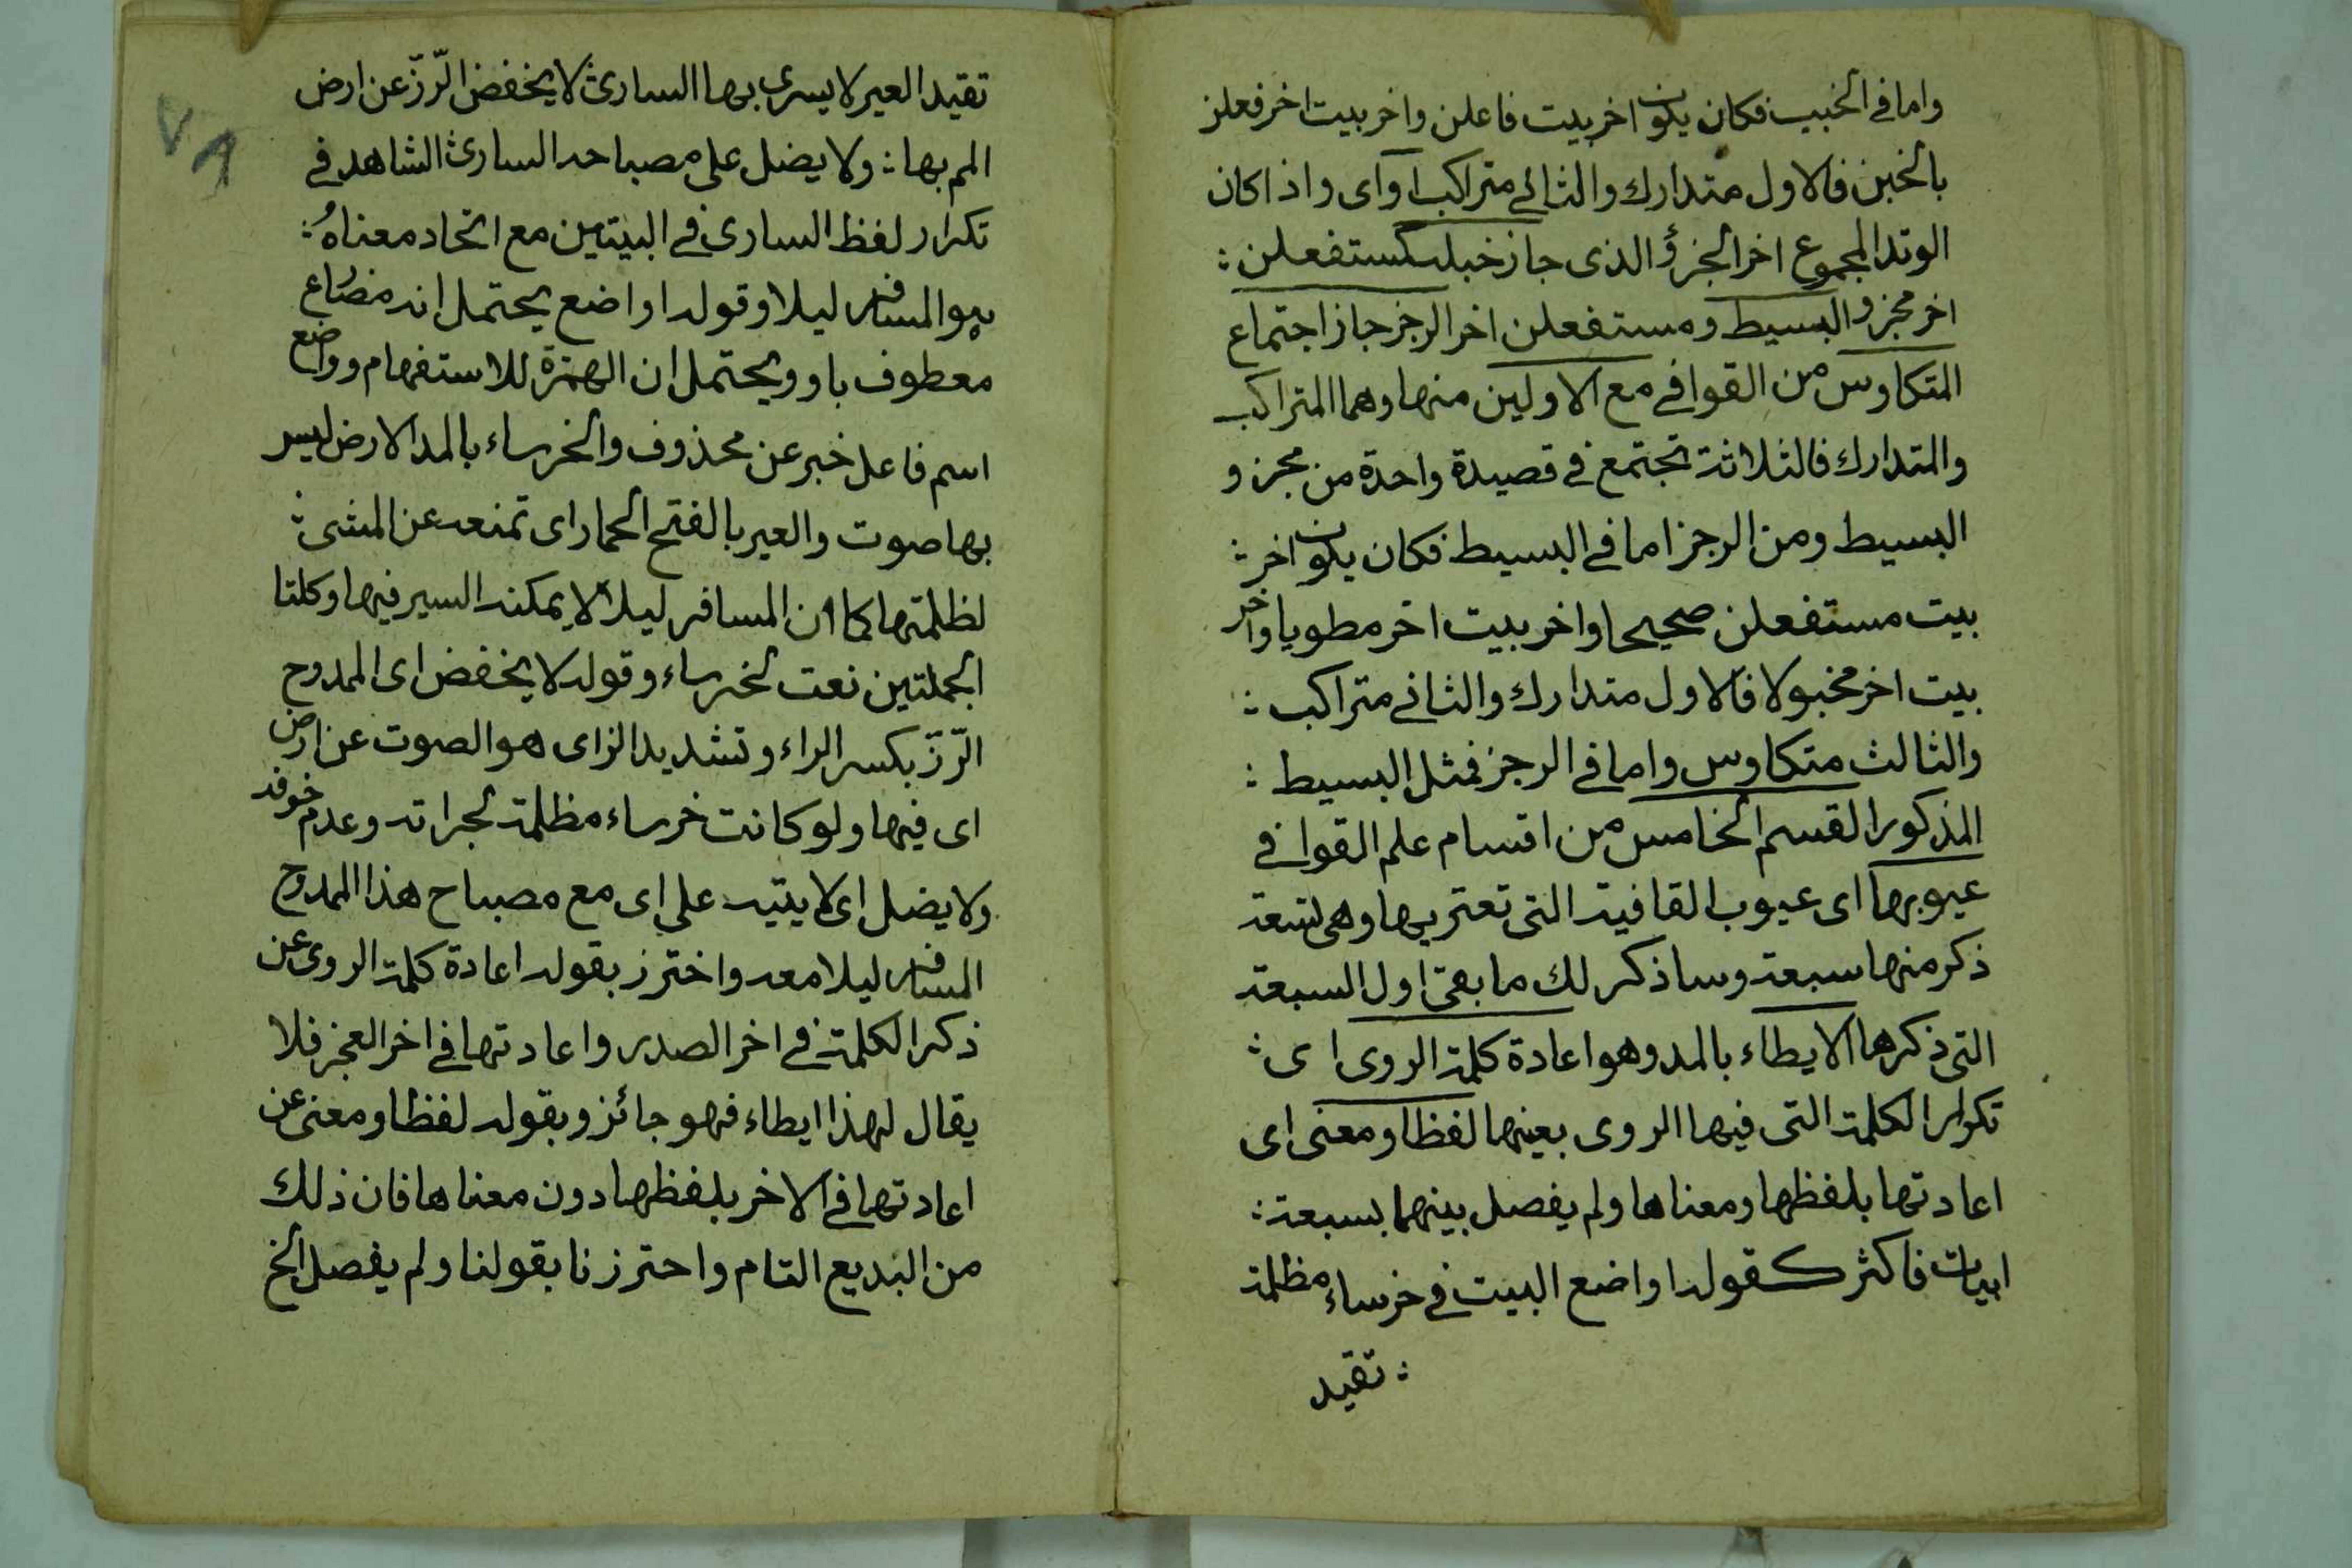 واما في الخبب فكان يكون اخر بيت فاعلن واخر بيت اخر فعلن
بالخبن فالاول متدارك والثاني متراكب او اى واذا كان
الوتد المجموع اخر الجزؤ الذى جاز خبله كستفعلن
اخر مجزو البسيط ومستفعلن اخر الرجز جاز اجتماع
المتكاوس من القوافي مع الاولين منها وهما المتراكب
والمتدارك فالثلاثة تجتمع في قصيدة واحدة من مجزو
البسيط ومن الرجز اما في البسيط فكان يكون اخر
بيت مستفعلن صحيحا واخر بيت اخر مطويا واخر
بيت اخر مخبولا فالاول متدارك والثاني متراكب
والثالث متكاوس واما في الرجز فمثل البسيط
المذكور القسم الخامس من اقسام علم القوافي
عيوبها اى عيوب القافية التى تعتريها وهى تسعة
ذكر منها سبعة وساذكر لك ما بقى اول السبعة
التى ذكرها الايطاء بالمد وهو اعادة كلمة الروى اى
تكرار الكلمة التى فيها الروى بعينها لفظا ومعنى اى
اعادتها بلفظها ومعناها ولم يفصل بينهما بسبعة
ابيات فاكثر كقوله اواضع البيت في خرساء مظلمة
تقيد
٧٨
تقيد العير لا يسرى بها السارى لا يخفض الرّزّ عن ارض
الم بها ولا يضل على مصباحه السارى الشاهد في
تكرار لفظ السارى في البيتين مع اتحاد معناهُ
هو المسافر ليلا وقوله اواضع يحتمل انه مضارع
معطوف باو ويحتمل ان الهمزة للاستفهام وواضع
اسم فاعل خبر عن محذوف والخرساء بالمد الارض ليس
بها صوت والعير بالفتح الحمار اى تمنعه عن المشى
لظلمتها كما ان المسافر ليلا لا يمكنه السير فيها وكلتا
الجملتين نعت لخرساء وقوله لا يخفض اى الممدوح
الرّزّ بكسر الراء وتشديد الزاى هو الصوت عن ارض
اى فيها ولو كانت خرساء مظلمة لجراته وعدم خوفه
ولا يضل اى لا يتيه على اى مع مصباح هذا الممدوح
المسافر ليلا معه واحترز بقوله اعادة كلمة الروى عن
ذكر الكلمة في اخر الصدر واعادتها في اخر العجز فلا
يقال لهذا ايطاء فهو جائز وبقوله لفظا ومعنى عن
اعادتها في الاخر بلفظها دون معناها فان ذلك
من البديع التام واحترزنا بقولنا ولم يفصل الخ